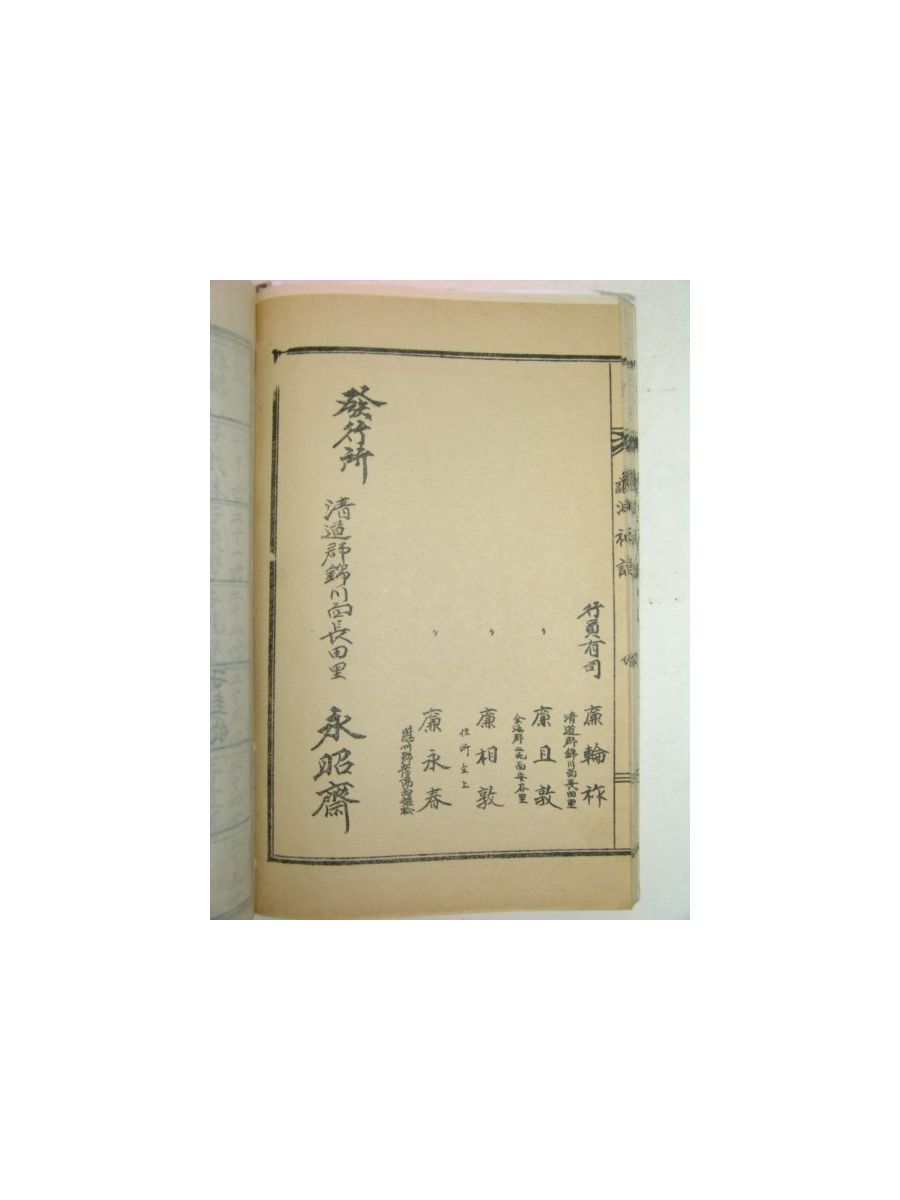 行員有司
廉輪祚
清道郡錦川面長田里
〃
廉且敦
金海郡一北面安谷里
〃
廉相敦
住所仝上
〃
廉永春
發行所
清道郡錦川面長田里
永昭齋